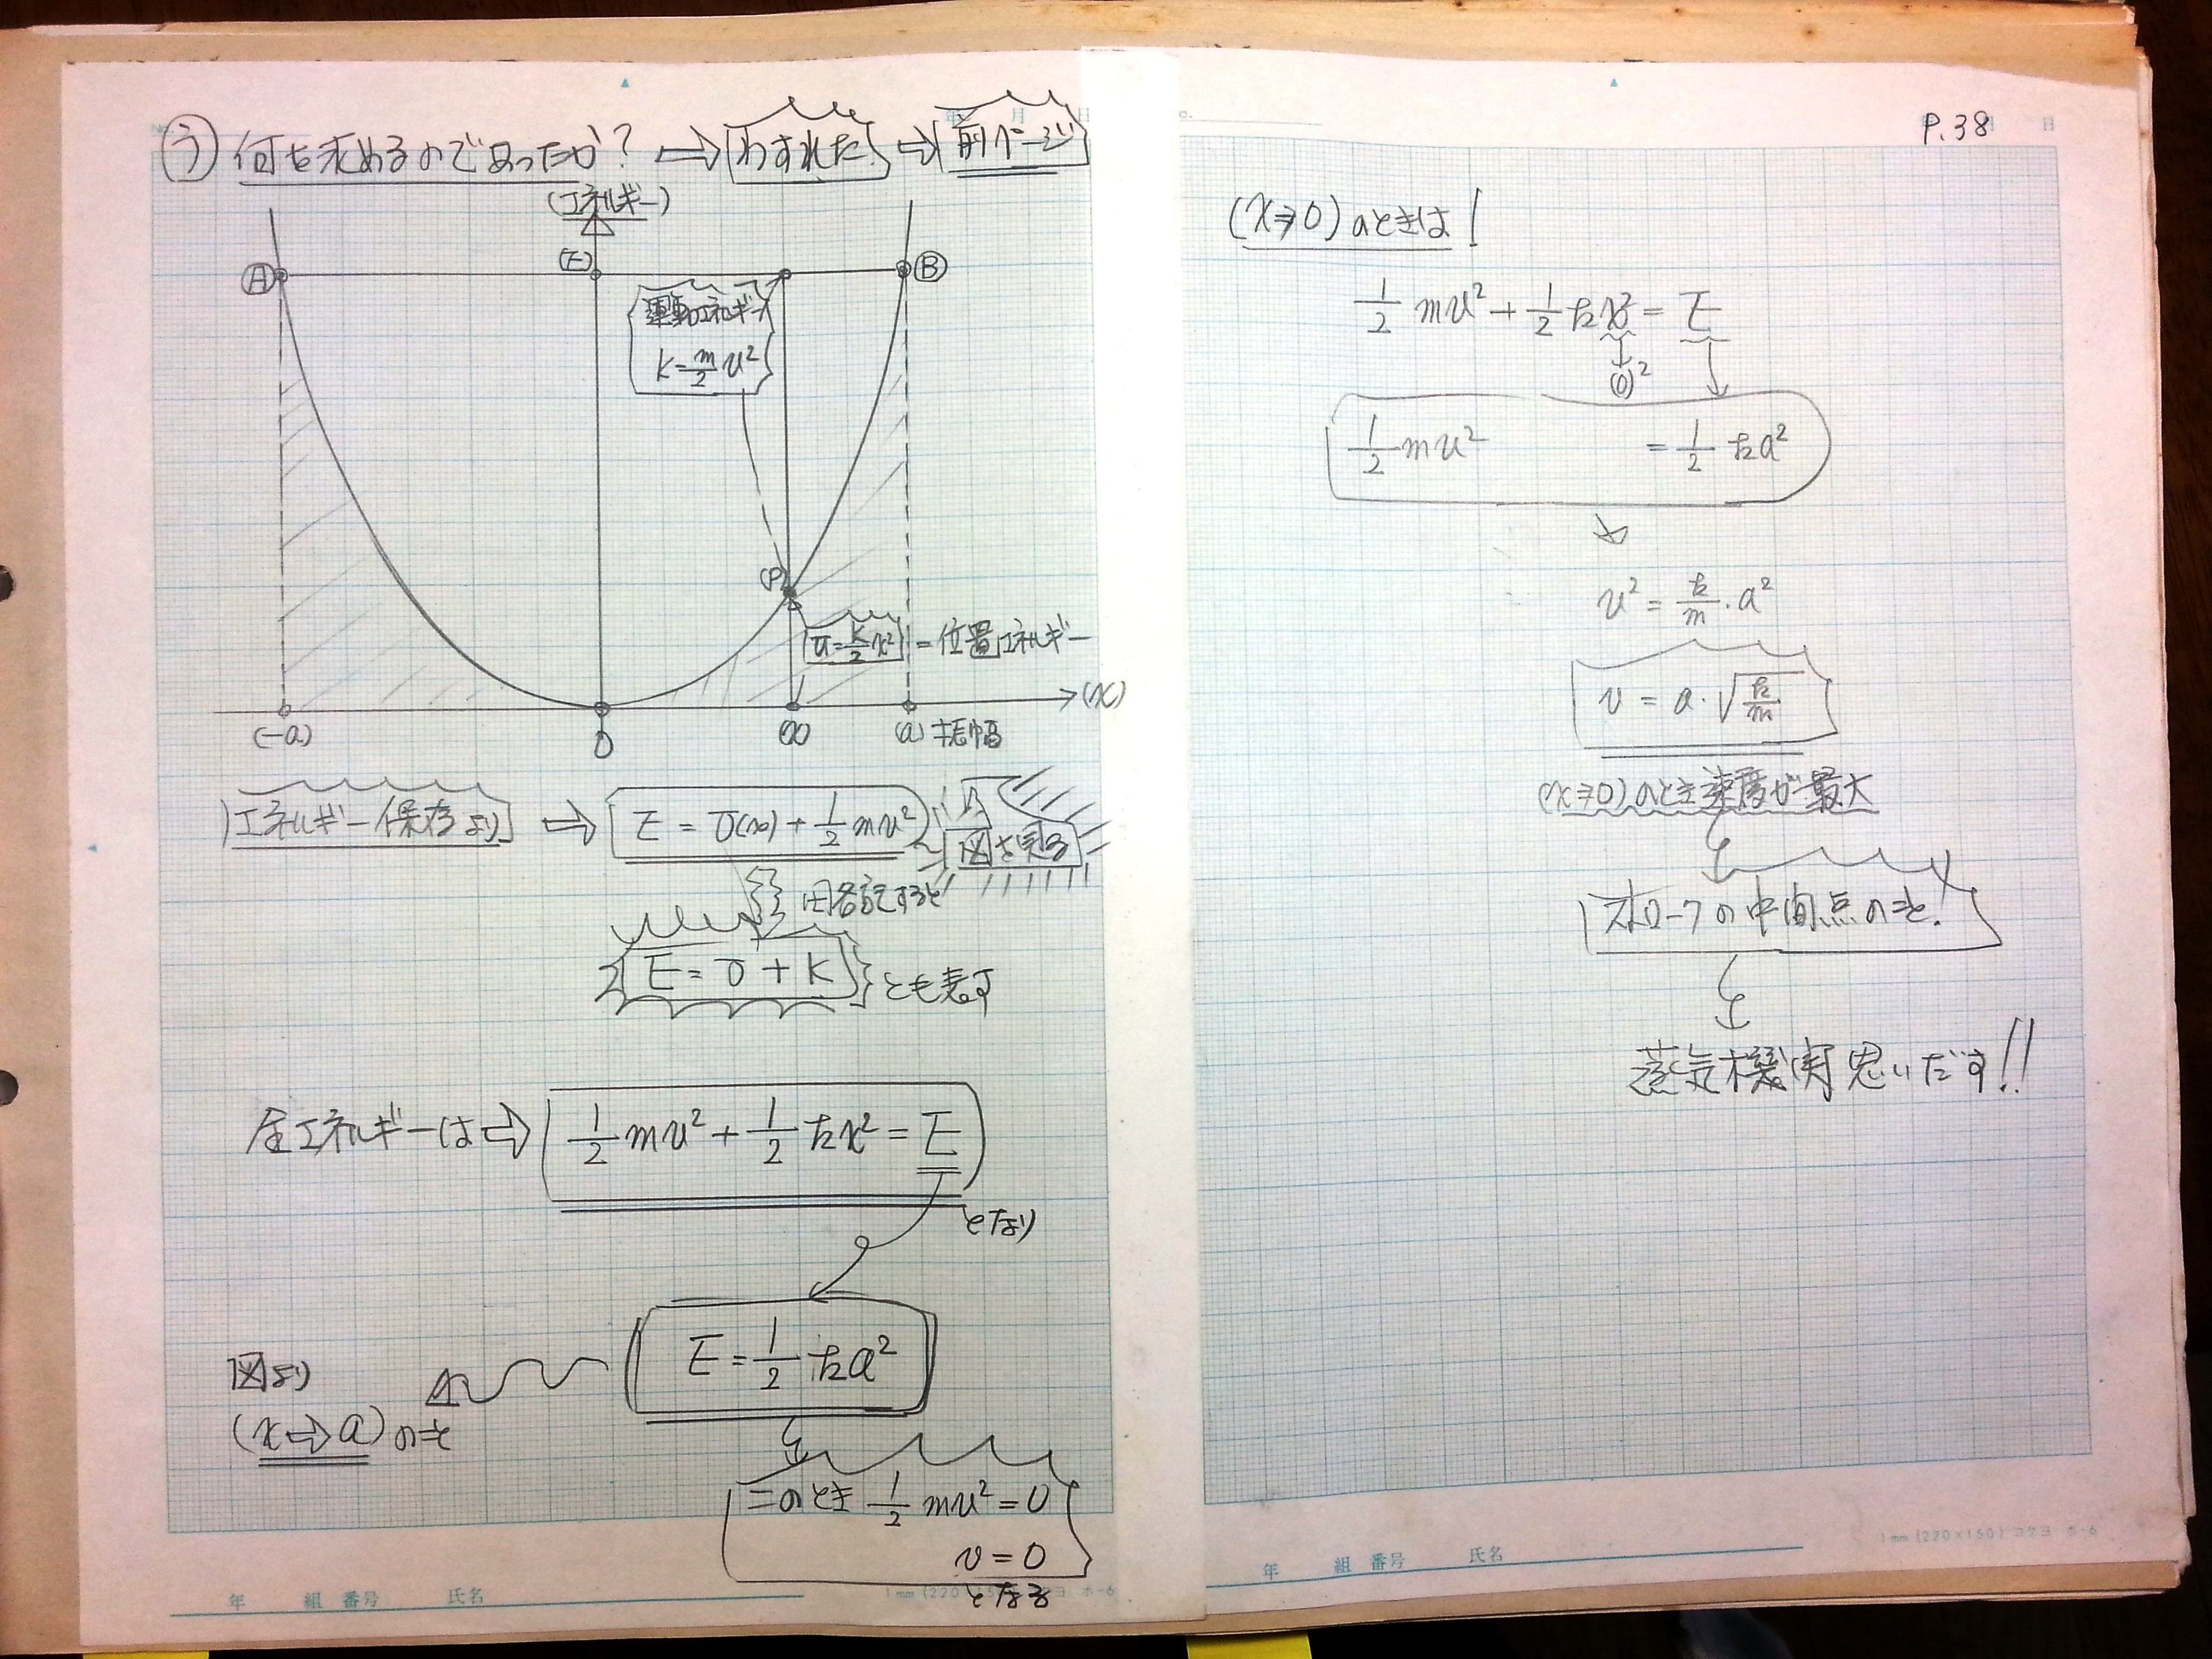 う 何を求めるのであったか? ⇒ わすれた! ⇒ 前ページ
(エネルギー)
A (E) B
運動エネルギー
K=m/2 v²
(P)
U=k/2 x² = 位置エネルギー
(-a) 0 (x) (a) 振幅 (x)
エネルギー保存より ⇒ E = U(x) + 1/2 mv² 図を見る
略記すると
E = U + K とも表す
全エネルギーは ⇒ 1/2 mv² + 1/2 kx² = E
となり
E = 1/2 ka²
図より
(x→a)のとき
このとき 1/2 mv² = 0
v = 0
となる
P.38
(x⇒0)のときは!
1/2 mv² + 1/2 kx² = E
(0)²
1/2 mv² = 1/2 ka²
v² = k/m · a²
v = a · √k/m
(x⇒0)のとき速度が最大
ストロークの中間点のとき!
蒸気機関思いだす!!
年 組 番号 氏名
年 組 番号 氏名
1mm (220×150) コクヨ ホ-6